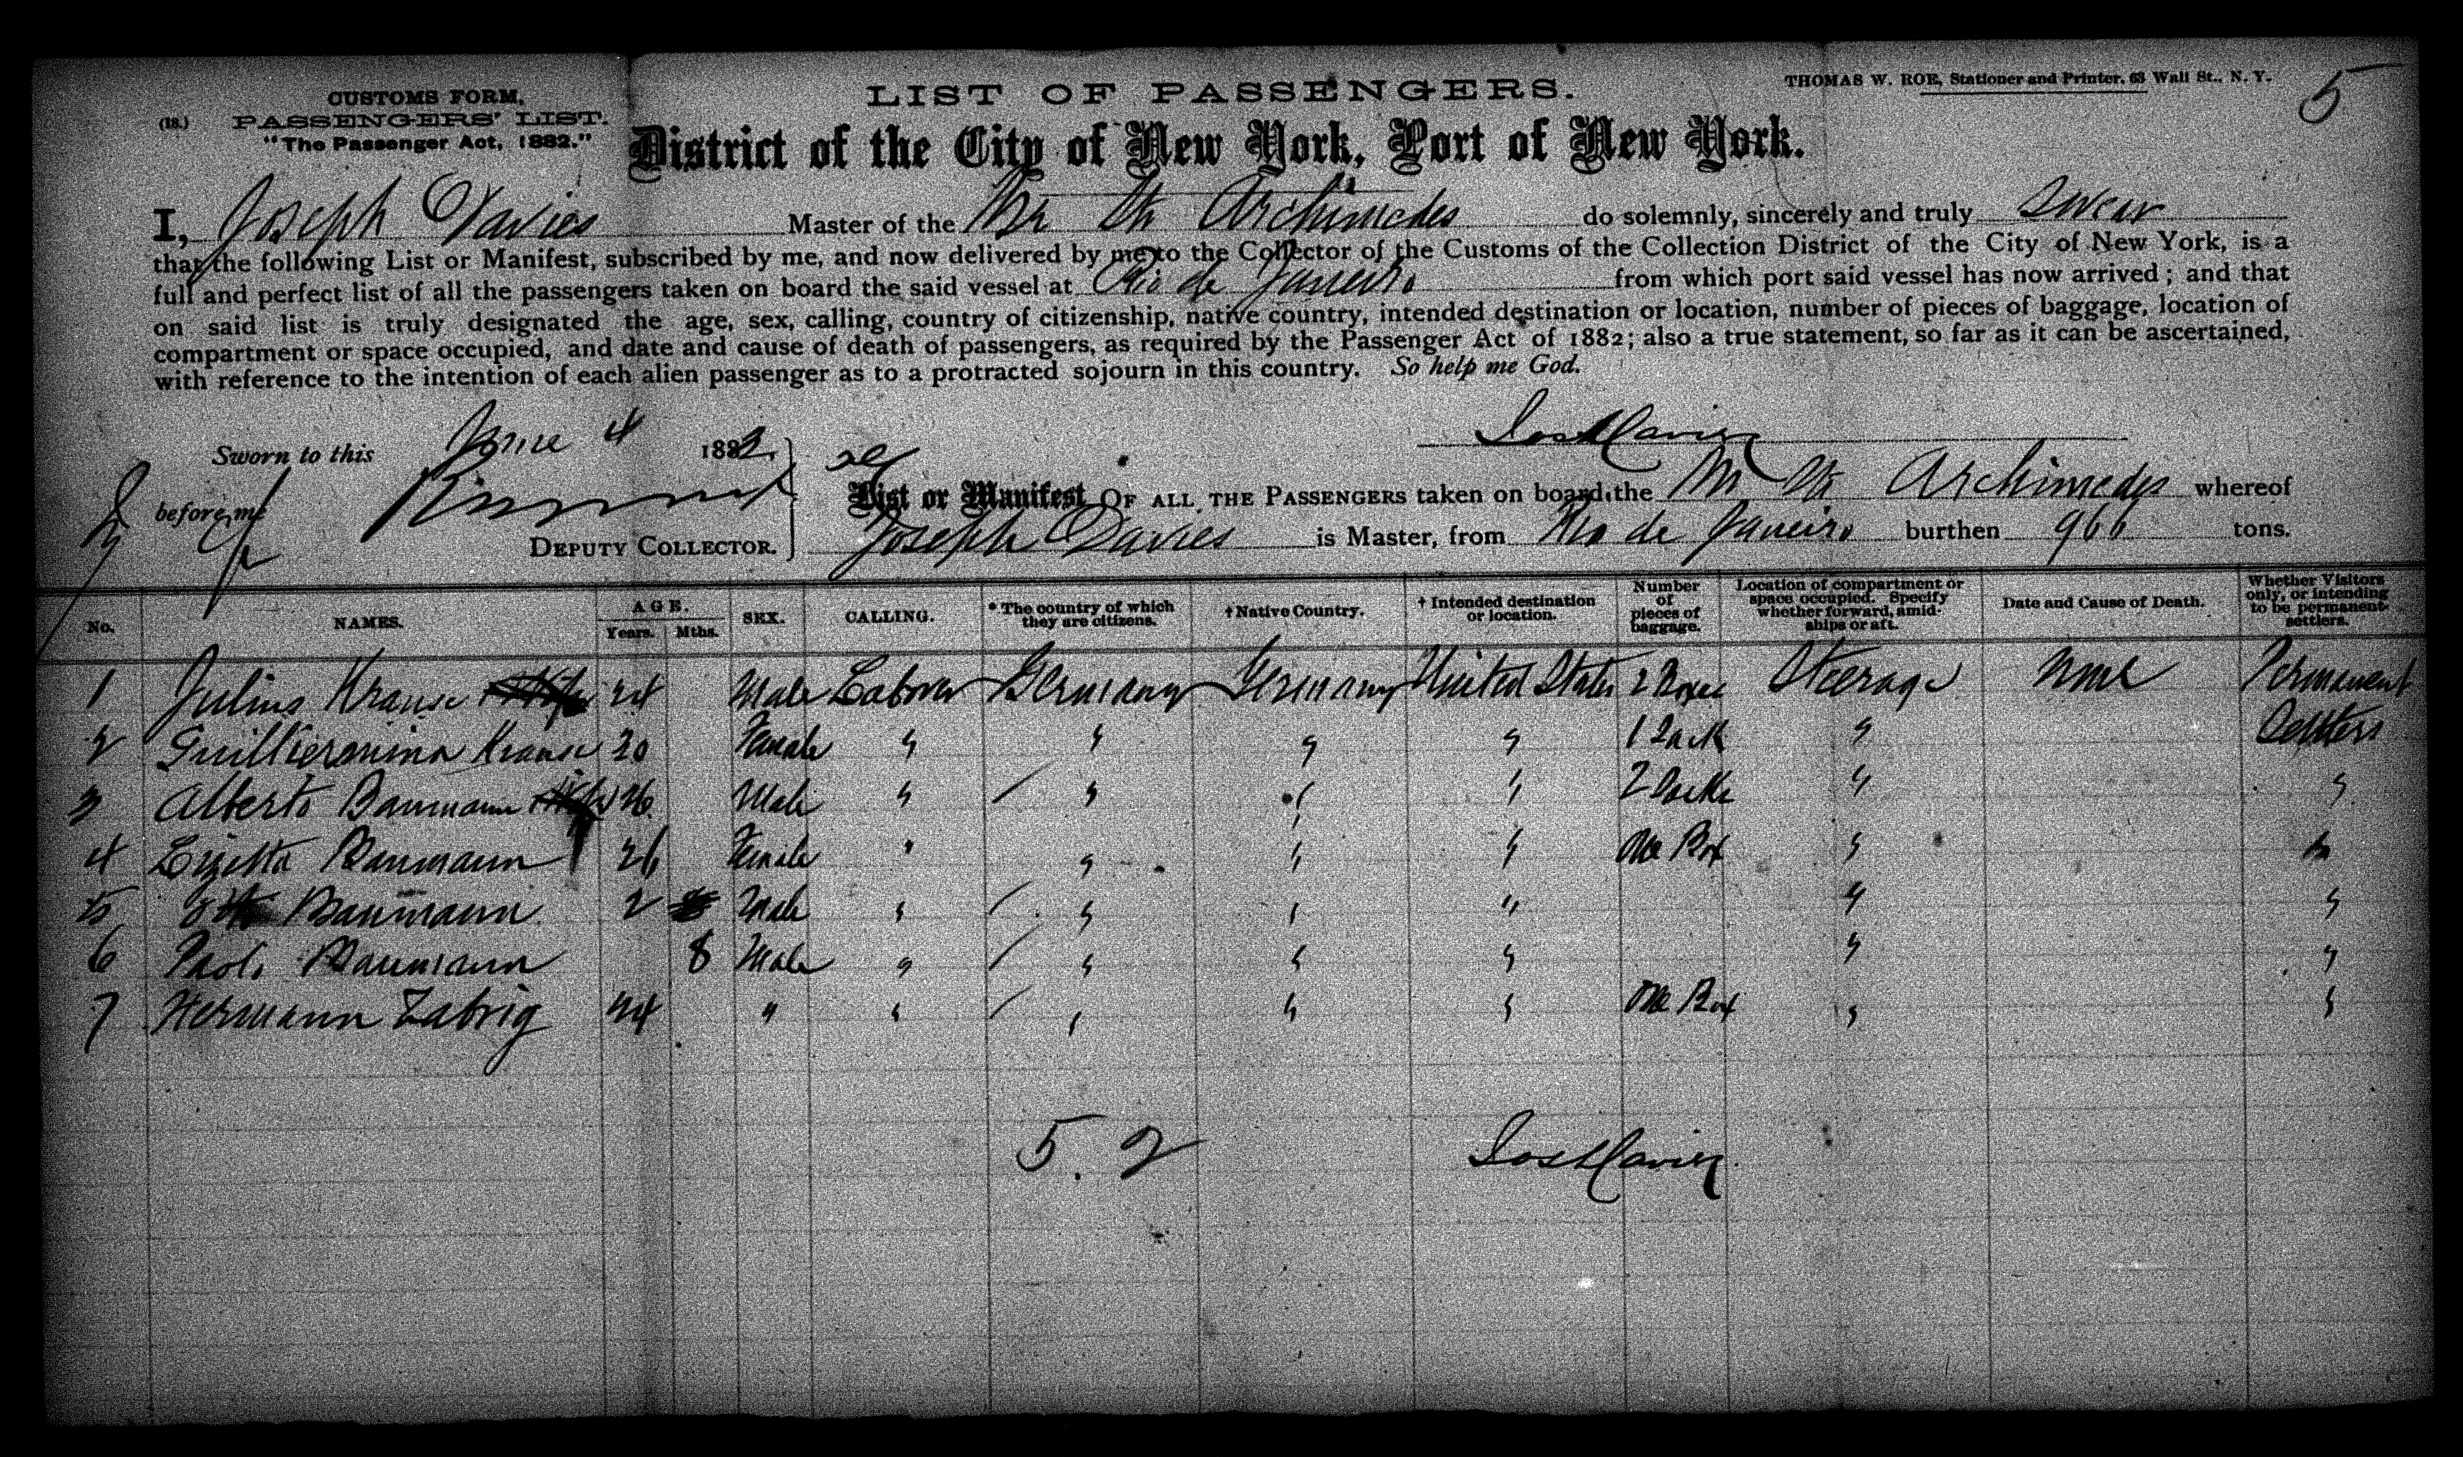 CUSTOMS FORM,
(18.) PASSENGERS' LIST.
"The Passenger Act, 1882."
LIST OF PASSENGERS.
THOMAS W. ROE, Stationer and Printer, 63 Wall St., N. Y.
5
District of the City of New York, Port of New York.
I, Joseph Davies Master of the Br Str Archimedes do solemnly, sincerely and truly swear
that the following List or Manifest, subscribed by me, and now delivered by me to the Collector of the Customs of the Collection District of the City of New York, is a
full and perfect list of all the passengers taken on board the said vessel at Rio de Janeiro from which port said vessel has now arrived; and that
on said list is truly designated the age, sex, calling, country of citizenship, native country, intended destination or location, number of pieces of baggage, location of
compartment or space occupied, and date and cause of death of passengers, as required by the Passenger Act of 1882; also a true statement, so far as it can be ascertained,
with reference to the intention of each alien passenger as to a protracted sojourn in this country. So help me God.
Jos Davies
Sworn to this June 4 188
before me
DEPUTY COLLECTOR.
List or Manifest OF ALL THE PASSENGERS taken on board the Str Archimedes whereof
Joseph Davies is Master, from Rio de Janeiro burthen 966 tons.
No. NAMES. AGE. Years. Mths. SEX. CALLING. * The country of which they are citizens. † Native Country. † Intended destination or location. Number of pieces of baggage. Location of compartment or space occupied. Specify whether forward, amidships or aft. Date and Cause of Death. Whether Visitors only, or intending to be permanent settlers.
1 Julius Krause 24 Male Labourer Germany Germany United States 2 Boxes Steerage None Permanent Settlers
2 Guilliermina Krause 20 Female " " " " 1 Sack "
3 Alberto Baumann 26 Male " " " " 2 Sacks " "
4 Lizetta Baumann 26 Female " " " " One Box " "
5 Otto Baumann 2 Male " " " " " "
6 Paolo Baumann 8 Male " " " " " "
7 Hermann Zabrig 24 " " " " " One Box " "
5. 2
Jos Davies